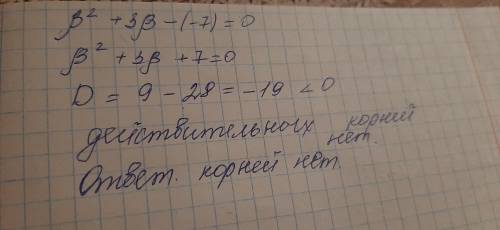 β² + 3β - (-7) = 0
β² + 3β + 7 = 0
D = 9 - 28 = -19 < 0
действительных корней
нет.
Ответ. корней нет.